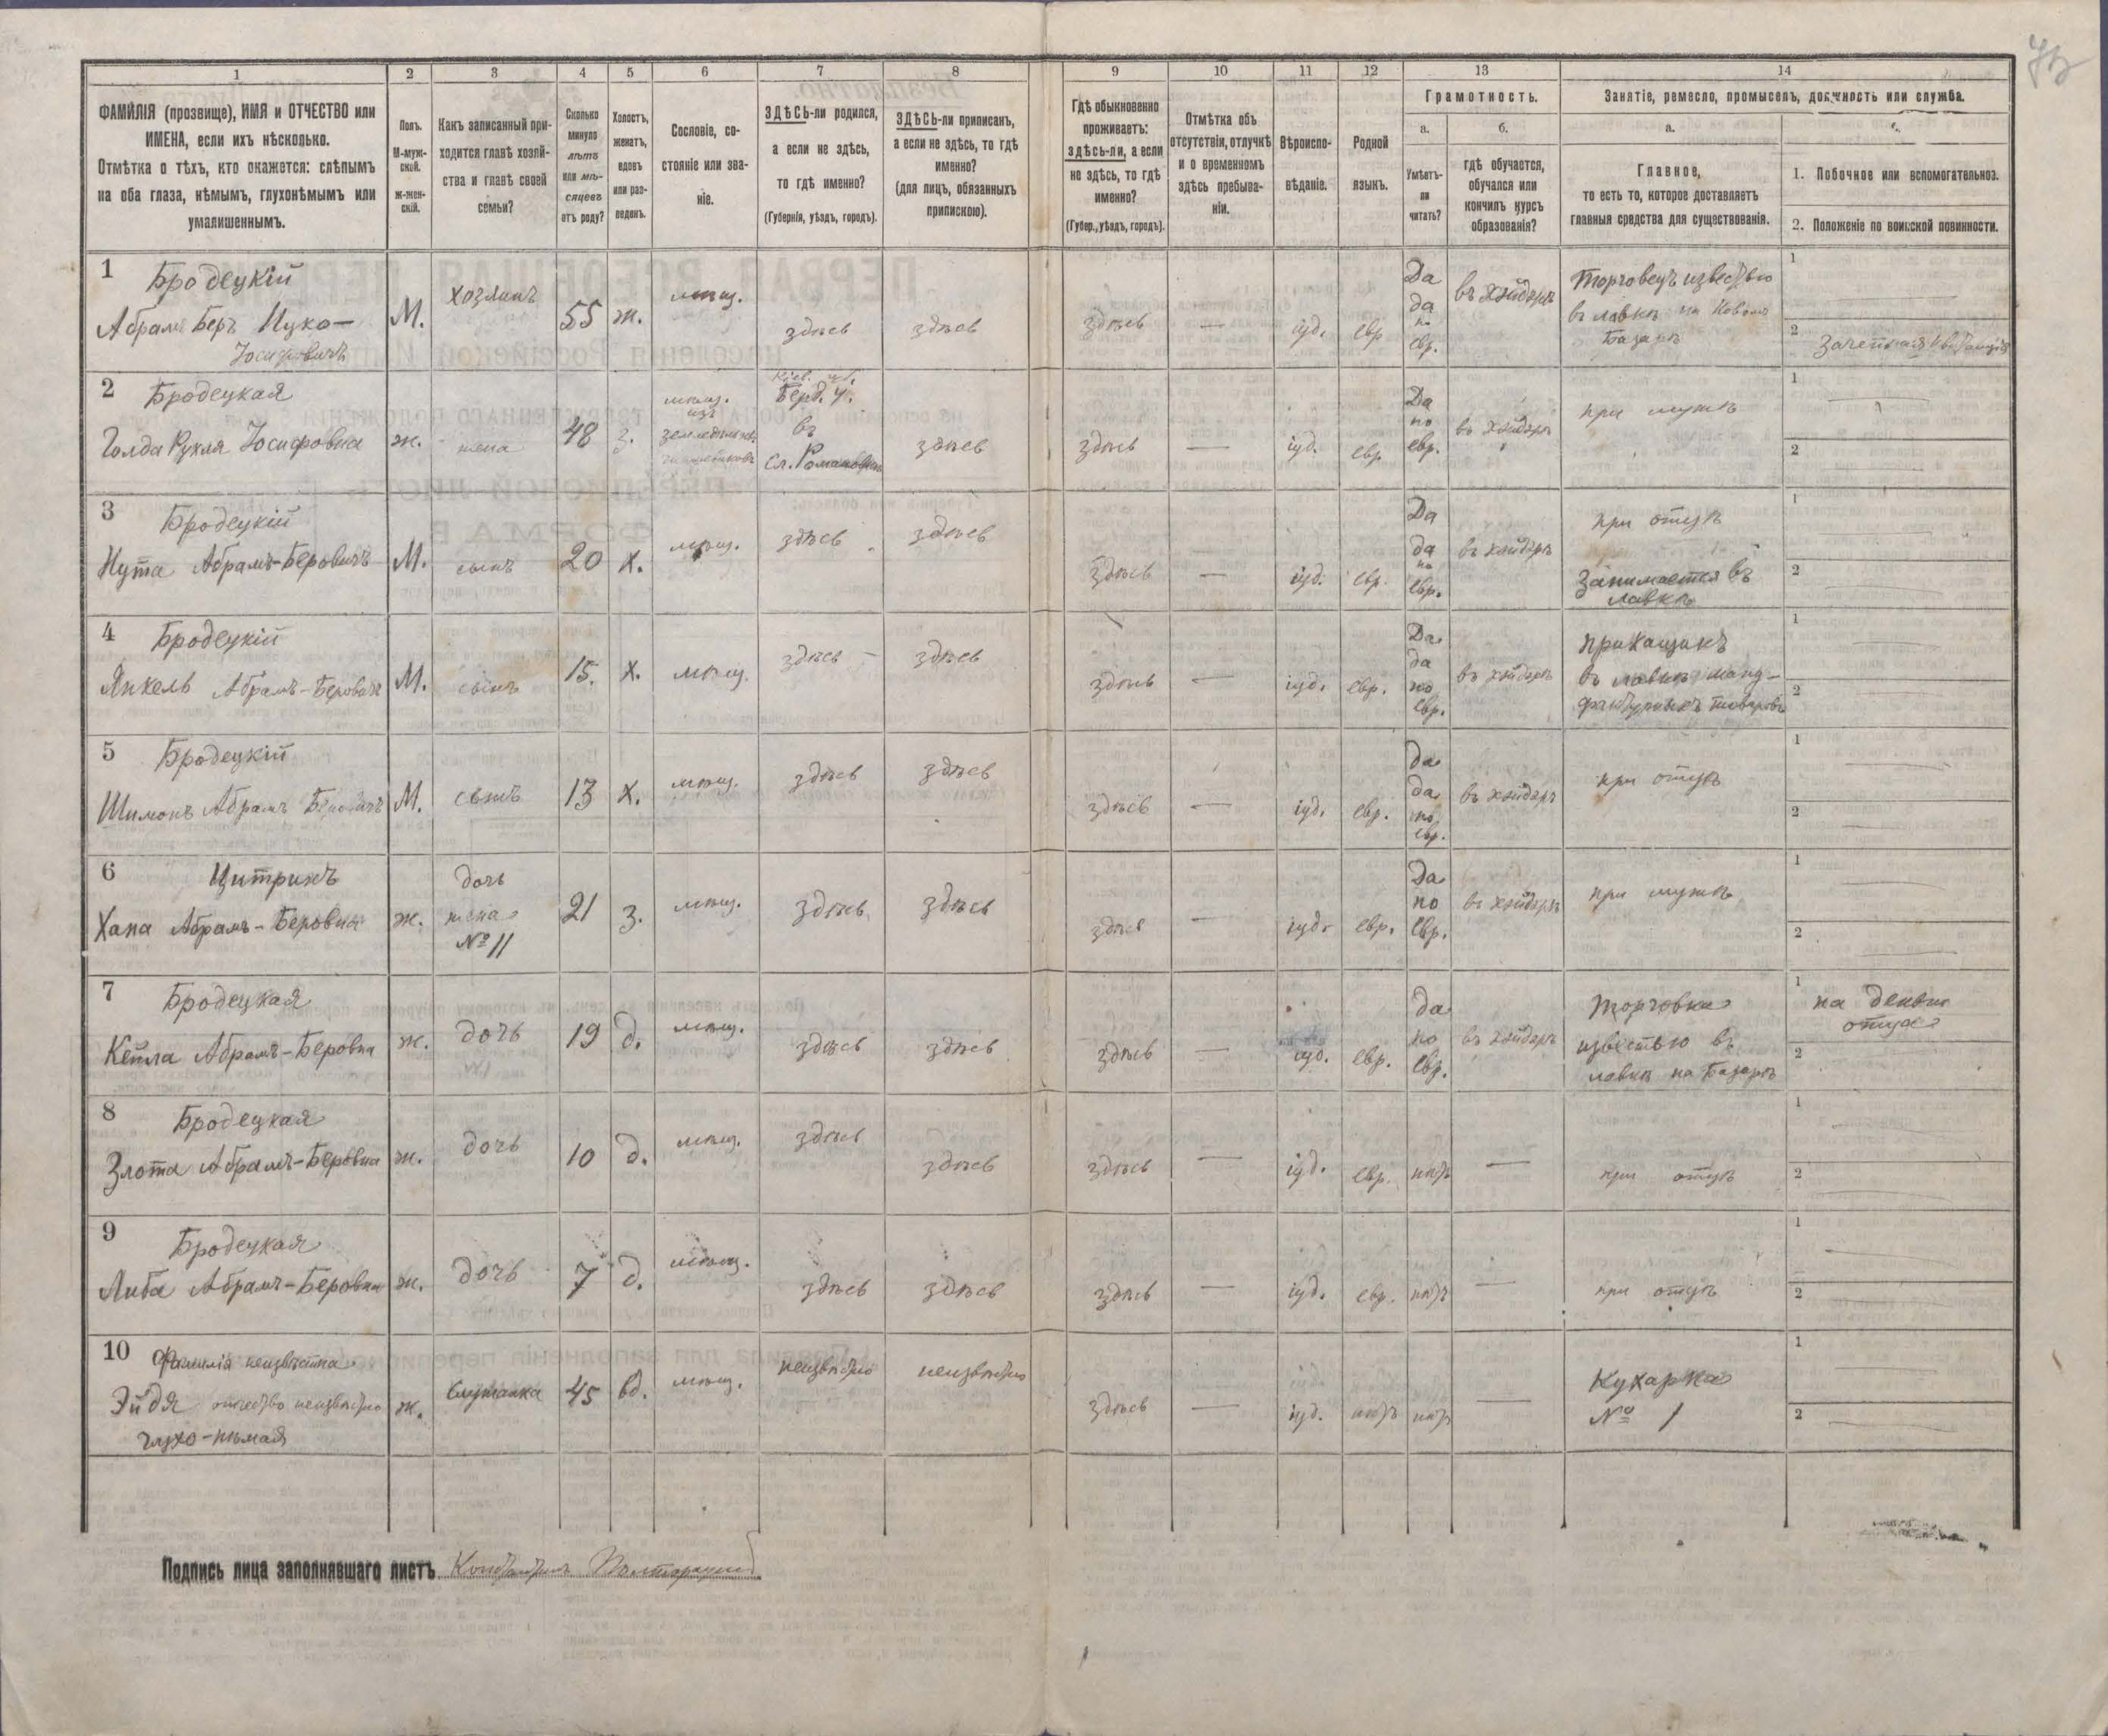 1
2
3
4
5
6
7
8
9
10
11
12
13
14
ФАМИЛІЯ (прозвище), ИМЯ и ОТЧЕСТВО или
ИМЕНА, если ихъ нѣсколько.
Отмѣтка о тѣхъ, кто окажется: слѣпымъ
на оба глаза, нѣмымъ, глухонѣмымъ или
умалишеннымъ.
Полъ.
М-муж-
ской.
Ж-жен-
скій.
Какъ записанный при-
ходится главѣ хозяй-
ства и главѣ своей
семьи?
Сколько
минуло
лѣтъ
или мѣ-
сяцевъ
отъ роду?
Холостъ,
женатъ,
вдовъ
или раз-
веденъ.
Сословіе, со-
стояніе или зва-
ніе.
ЗДѢСЬ-ли родился,
а если не здѣсь,
то гдѣ именно?
(Губернія, уѣздъ, городъ).
ЗДѢСЬ-ли приписанъ,
а если не здѣсь, то гдѣ
именно?
(для лицъ, обязанныхъ
припискою).
Гдѣ обыкновенно
проживаетъ:
здѣсь-ли, а если
не здѣсь, то гдѣ
именно?
(Губер., уѣздъ, городъ).
Отмѣтка объ
отсутствіи, отлучкѣ
и о временномъ
здѣсь пребыва-
ніи.
Вѣроиспо-
вѣданіе.
Родной
языкъ.
Грамотность.
а.
Умѣетъ-
ли
читать?
б.
гдѣ обучается,
обучался или
кончилъ курсъ
образованія?
Занятіе, ремесло, промыселъ, должность или служба.
а.
Главное,
то есть то, которое доставляетъ
главныя средства для существованія.
1. Побочное или вспомогательное.
2. Положеніе по воинской повинности.
1 Бродецкій
Абрамъ Беръ Ицко-
Іосифовичъ
М.
хозяинъ
55
ж.
мѣщ.
здѣсь
здѣсь
здѣсь
—
іуд.
евр
Да
да
по
евр.
въ хэйдерѣ
Торговецъ известью
въ лавкѣ на Новомъ
Базарѣ
1
2
2 Бродецкая
Голда Рухля Іосифовна
ж.
жена
48
з.
мѣщ.
изъ
Кіев. губ.
Берд. у.
въ
сл. Романовка
здѣсь
здѣсь
—
іуд.
евр
Да
по
евр.
въ хэйдерѣ
при мужѣ
1
2
3 Бродецкій
Нута Абрамъ-Беровичъ
М.
сынъ
20
х.
мѣщ.
здѣсь
здѣсь
здѣсь
—
іуд.
евр.
Да
да
по
евр.
въ хэйдерѣ
при отцѣ
Занимается въ
лавкѣ
1
2
4 Бродецкій
Янкель Абрамъ-Беровичъ
М.
сынъ
15.
х.
мѣщ.
здѣсь
здѣсь
здѣсь
—
іуд.
евр.
Да
да
по
евр.
въ хэйдерѣ
прикащикъ
въ лавкѣ ману-
фактурныхъ товаровъ
1
2
5 Бродецкій
Шимонъ Абрамъ Беровичъ
М.
сынъ
13
х.
мѣщ.
здѣсь
здѣсь
здѣсь
—
іуд.
евр.
да
да
по
евр.
въ хэйдерѣ
при отцѣ
1
2
6 Цитринъ
Хана Абрамъ-Беровна
ж.
дочь
жена
№ 11
21
з.
мѣщ.
здѣсь
здѣсь
здѣсь
—
іуд.
евр.
Да
по
евр.
въ хэйдерѣ
при мужѣ
1
2
7 Бродецкая
Кейла Абрамъ-Беровна
ж.
дочь
19
д.
мѣщ.
здѣсь
здѣсь
здѣсь
—
іуд.
евр.
да
по
евр.
въ хэйдерѣ
Торговка
известью въ
лавкѣ на Базарѣ
1 на деньги
отца
2
8 Бродецкая
Злота Абрамъ-Беровна
ж.
дочь
10
д.
мѣщ.
здѣсь
здѣсь
здѣсь
—
іуд.
евр.
нѣтъ
—
при отцѣ
1
2
9 Бродецкая
Либа Абрамъ-Беровна
ж.
дочь
7
д.
мѣщ.
здѣсь
здѣсь
здѣсь
—
іуд.
евр.
нѣтъ
—
при отцѣ
1
2
10 Фамилія неизвѣстна
Эйдя отчество неизвѣстно
глухо-нѣмая
ж.
служанка
45
вд.
мѣщ.
неизвѣстно
неизвѣстно
здѣсь
—
іуд.
нѣтъ
нѣтъ
—
Кухарка
№ 1
1
2
Подпись лица заполнявшаго листъ